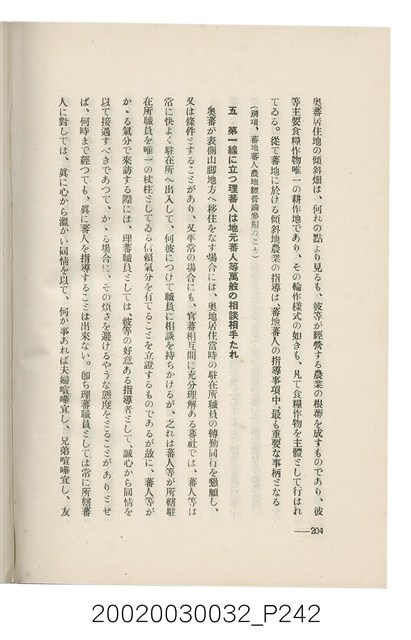 奥蕃居住地の傾斜畑は、何れの點より見るも、彼等が經營する農業の根蒂を成すものであり、彼
等主要食糧作物唯一の耕作地であり、その輪作樣式の如きも、凡て食糧作物を主體として行はれ
てゐる。從て蕃地に於ける傾斜地農業の指導は、蕃地蕃人の指導事項中、最も重要な事柄となる
(別項、蕃地蕃人農地經營論參照のこと)
五 第一線に立つ理蕃人は地元蕃人等萬般の相談相手たれ
奥蕃が表側山脚地方へ移住をなす場合には、奥地居住當時の駐在所職員の轉勤同行を懇願し、
又は條件とすることがあり、又平常の場合にも、官蕃相互間に充分理解ある蕃社では、蕃人等は
常に快よく駐在所へ出入して、何彼につけて職員に相談を持ちかけるが、之れは蕃人等が所轄駐
在所職員を唯一の杖柱としてゐる信頼氣分を有てることを立證するものであるが故に、蕃人等が
かゝる氣分で來訪する際には、理蕃職員としては、彼等の好意ある指導者として、誠心から同情を
以て接遇すべきであつて、かゝる場合に、その煩さを避けるやうな態度をとることがありとせ
ば、何時まで經つても、眞に蕃人を指導することは出來ない。卽ち理蕃職員としては常に所轄蕃
人に對しては、眞に心から溫かい同情を以て、何か事あれば夫婦喧嘩宜し、兄弟喧嘩宜し、友
204
20020030032_P242